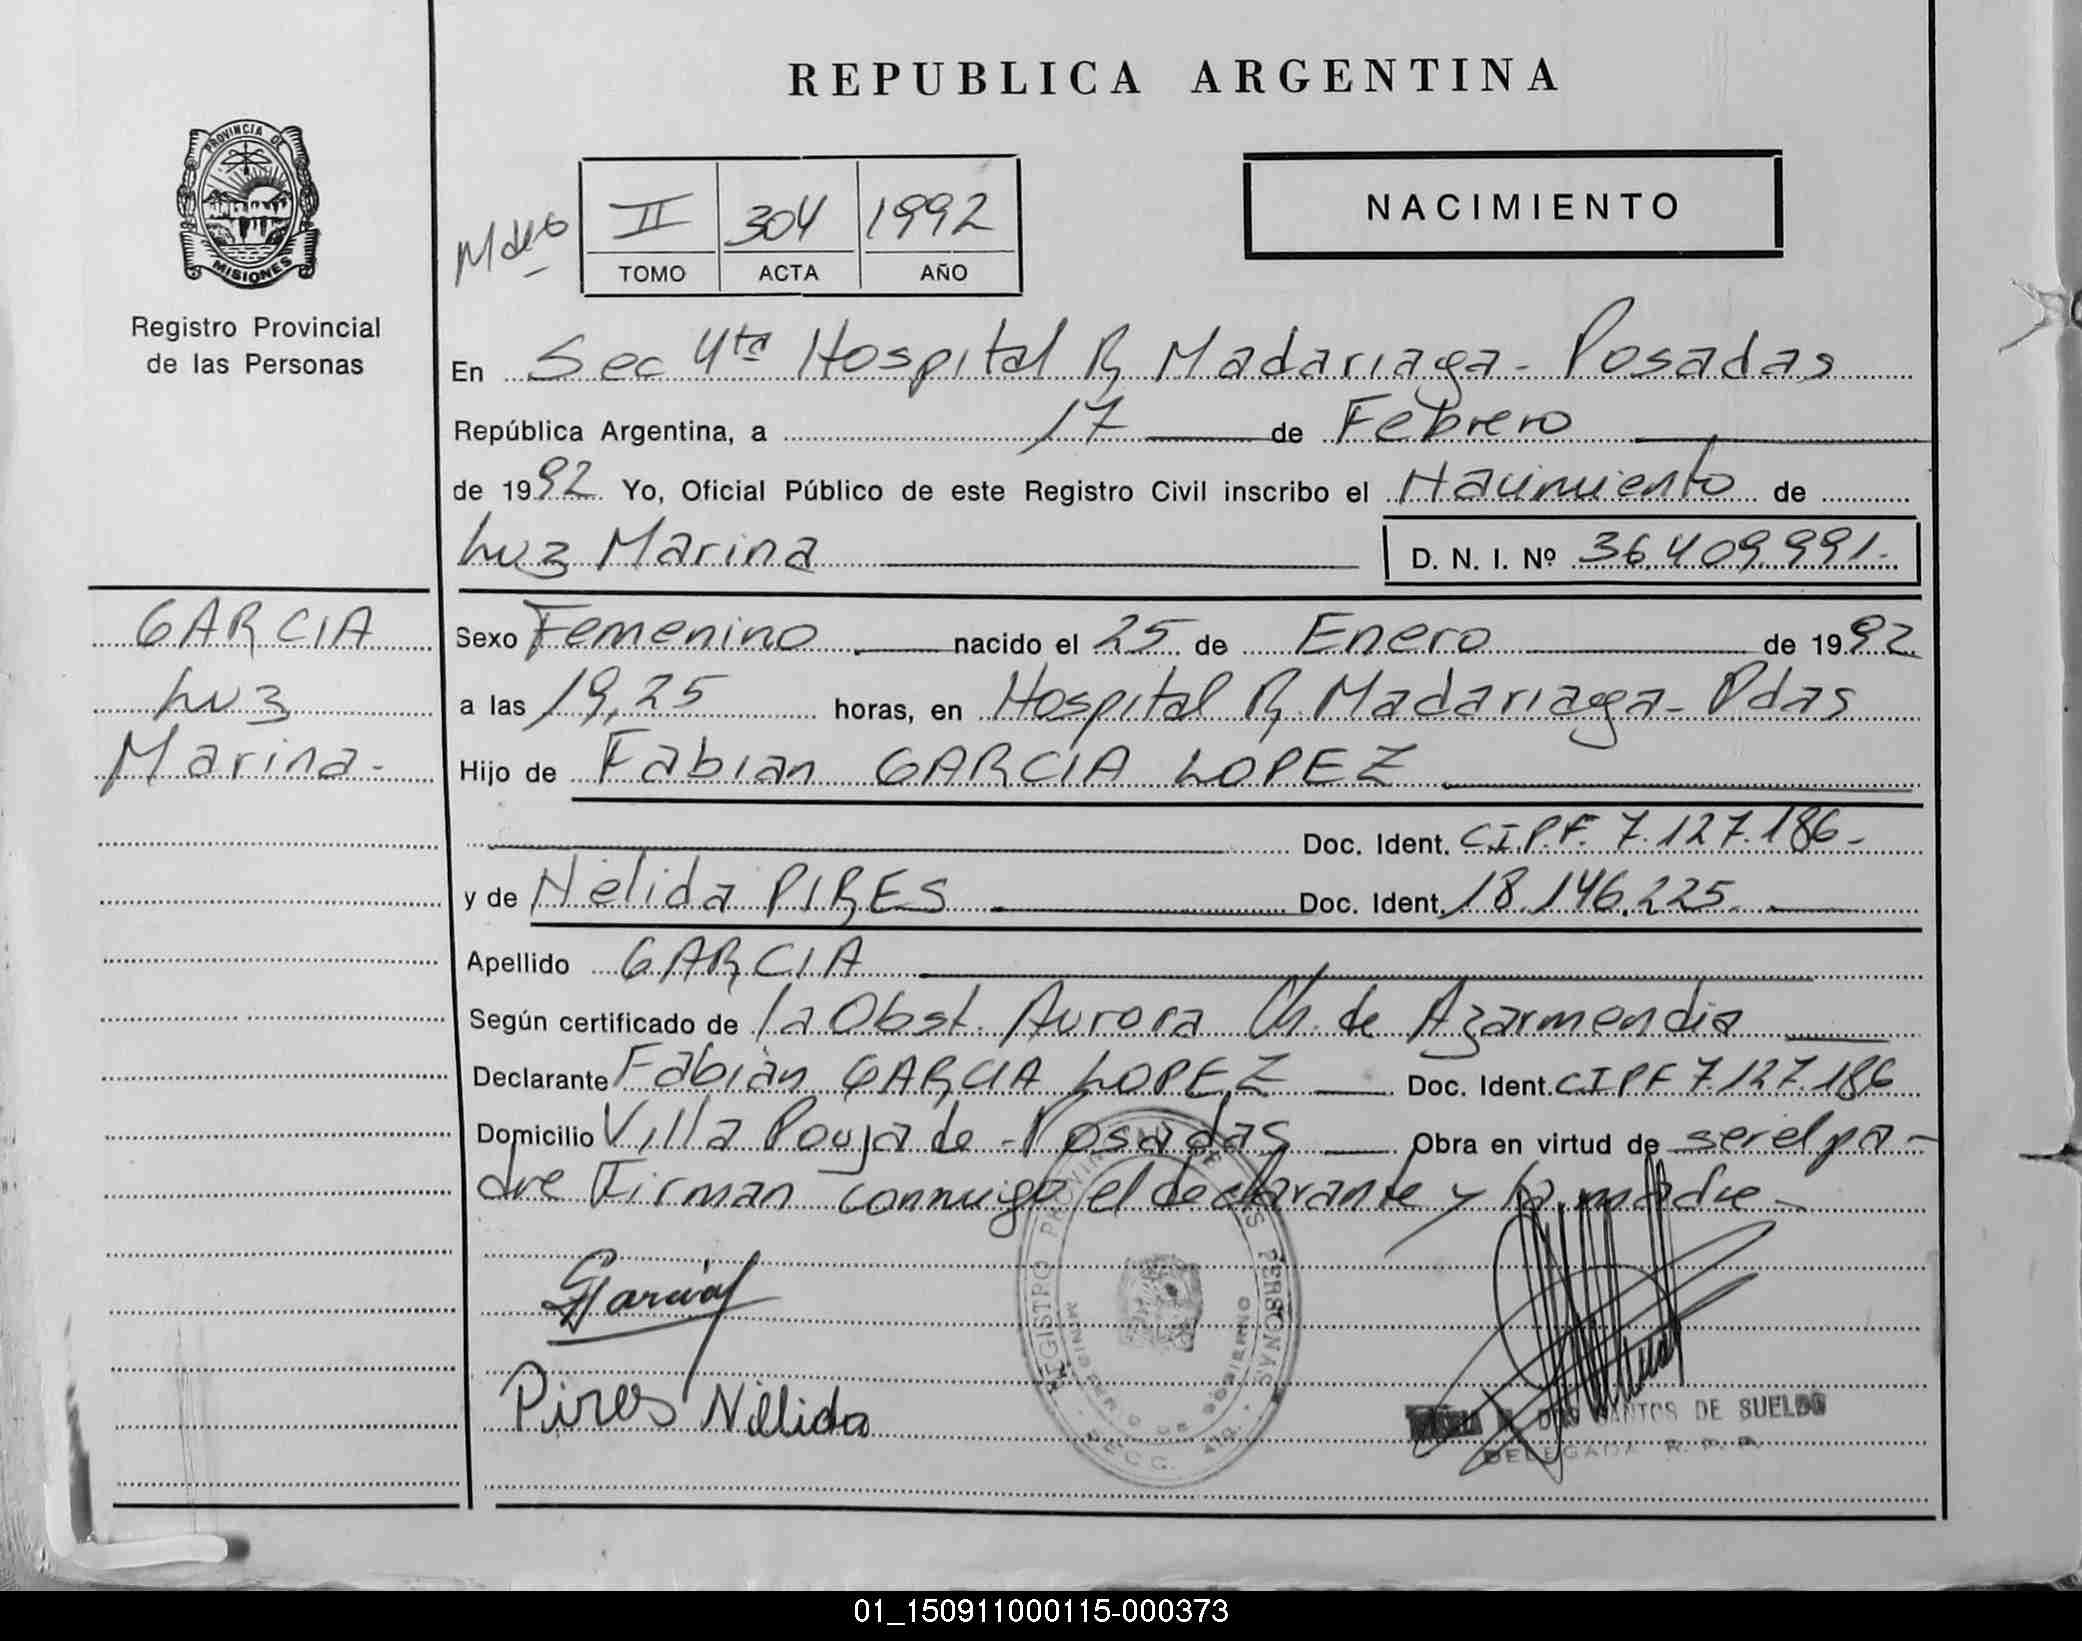 REPUBLICA ARGENTINA
PROVINCIA DE
MISIONES
Registro Provincial
de las Personas
NACIMIENTO
II 304 1992
TOMO ACTA AÑO
En Sec 4ta Hospital R Madariaga - Posadas
República Argentina, a 17 de Febrero
de 1992 Yo, Oficial Público de este Registro Civil inscribo el Nacimiento de
Luz Marina D. N. I. Nº 36.409.991.
GARCIA
Luz
Marina-
Sexo Femenino nacido el 25 de Enero de 1992
a las 19,25 horas, en Hospital R Madariaga - Pdas
Hijo de Fabian GARCIA LOPEZ
Doc. Ident. CIPF. 7.127.186-
y de Nélida PIRES Doc. Ident. 18.146.225
Apellido GARCIA
Según certificado de la Obst. Aurora Ch. de Azarmendia
Declarante Fabián GARCIA LOPEZ Doc. Ident. CIPF 7.127.186
Domicilio Villa Poujade - Posadas Obra en virtud de ser el pa-
dre Firman conmigo el declarante y la madre-
REGISTRO PROVINCIAL DE LAS PERSONAS
MINISTERIO DE GOBIERNO
Garcia
Pires Nélida
DOS SANTOS DE SUELDO
DELEGADA R. P. P.
01_150911000115-000373